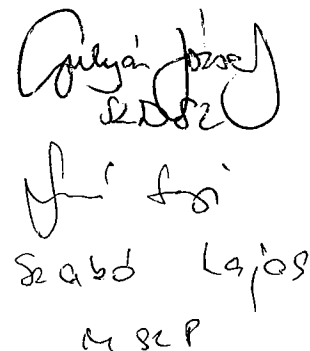 Gulyás József
SZDSZ
Szabó Lajos
MSZP